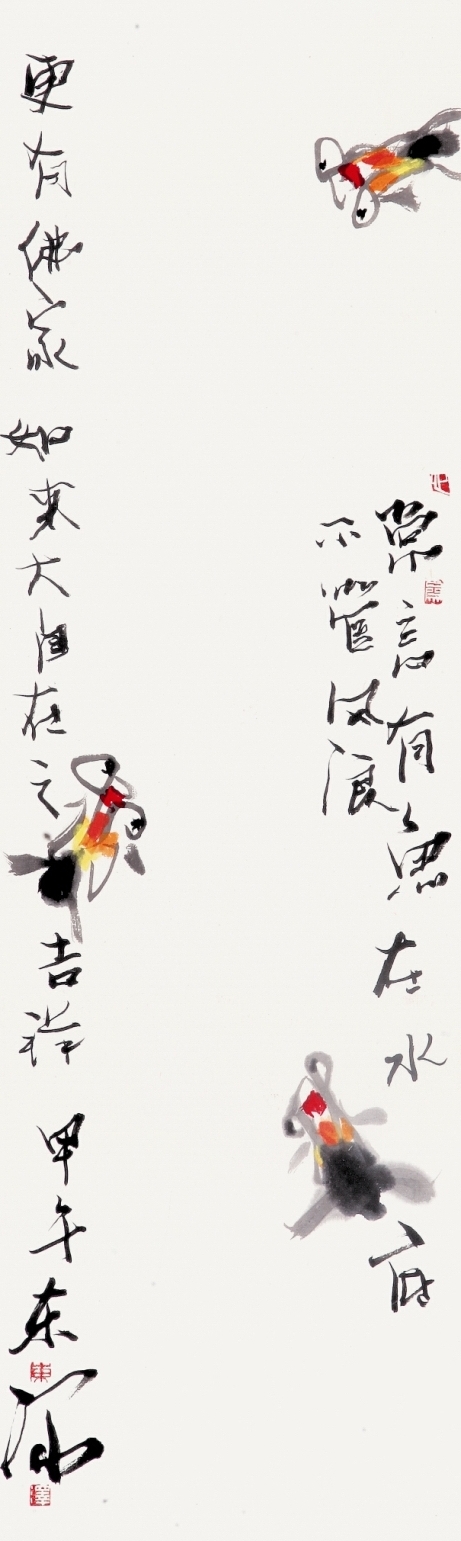 常言有魚在水底
不管风浪
更有佛家如来大自在之吉祥 甲午东
東
澤